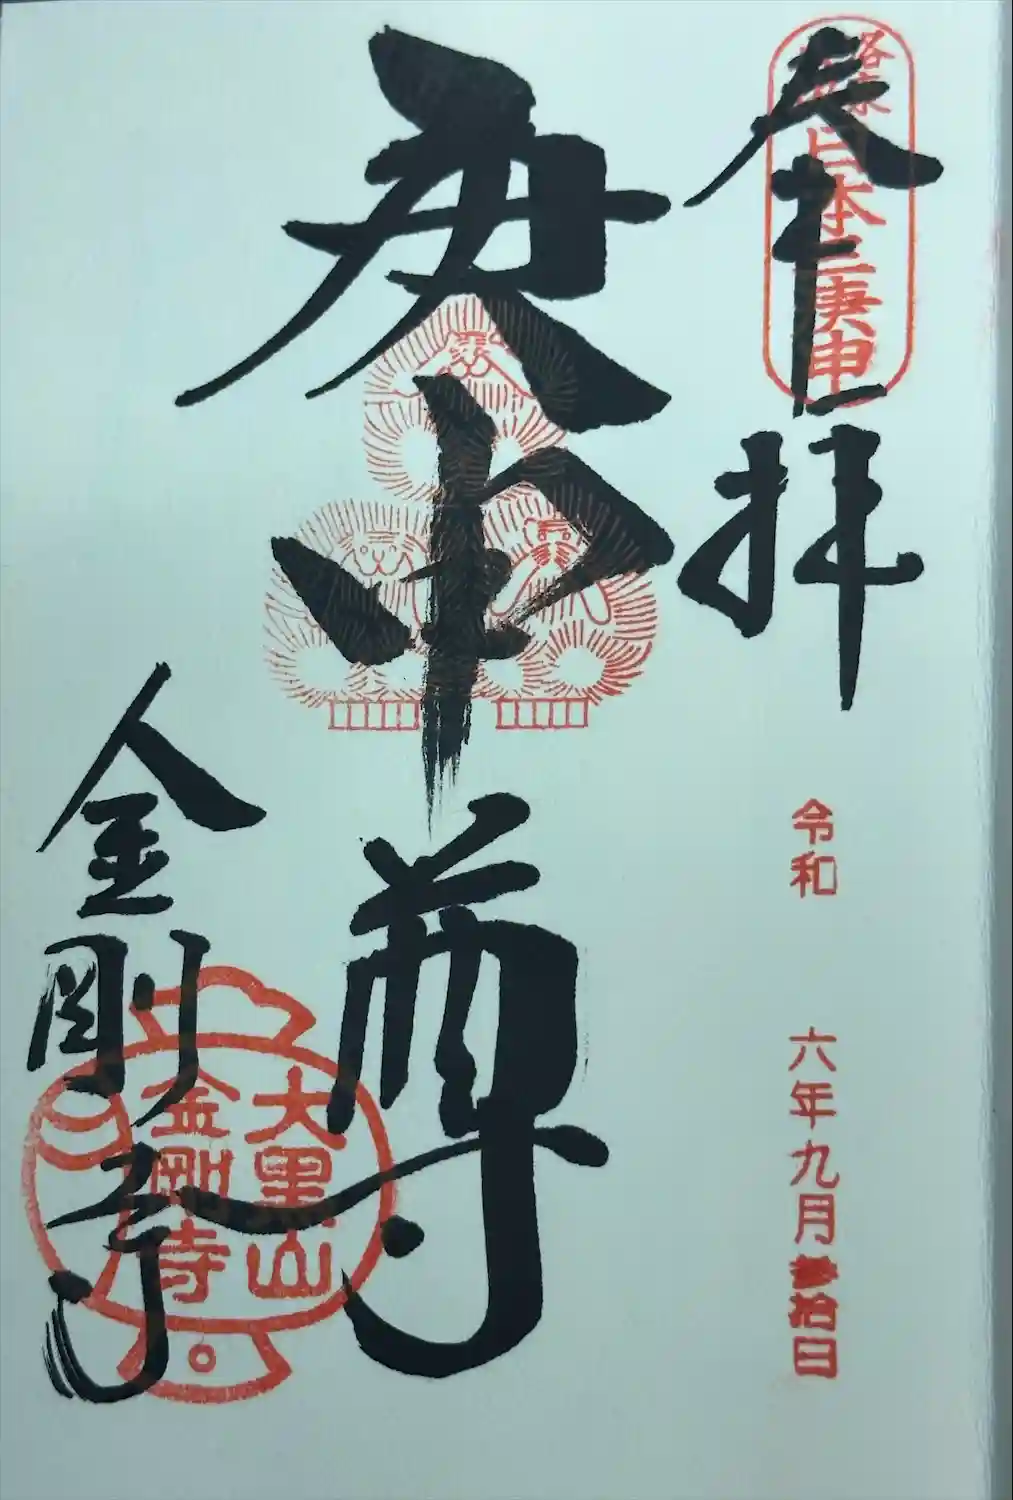 奉拝
洛東
日本三庚申
令和 六年九月参拾日
庚申尊
金剛寺
大黒山
金剛寺